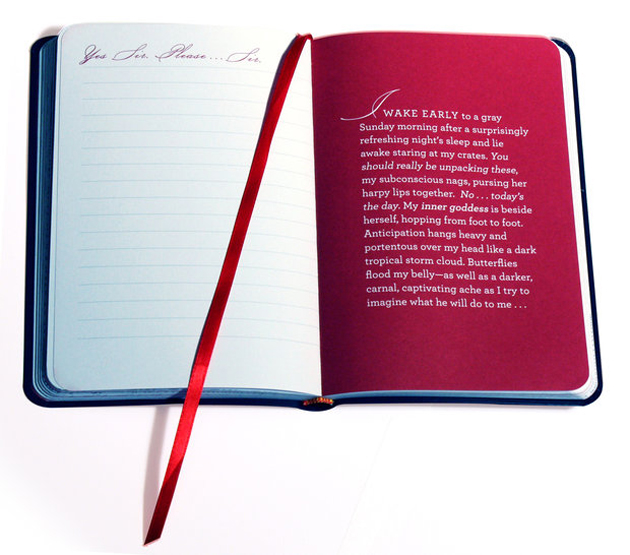 Yes Sir. Please... Sir.
I WAKE EARLY to a gray
Sunday morning after a surprisingly
refreshing night's sleep and lie
awake staring at my crates. You
should really be unpacking these,
my subconscious nags, pursing her
harpy lips together. No . . . today's
the day. My inner goddess is beside
herself, hopping from foot to foot.
Anticipation hangs heavy and
portentous over my head like a dark
tropical storm cloud. Butterflies
flood my belly—as well as a darker,
carnal, captivating ache as I try to
imagine what he will do to me . . .